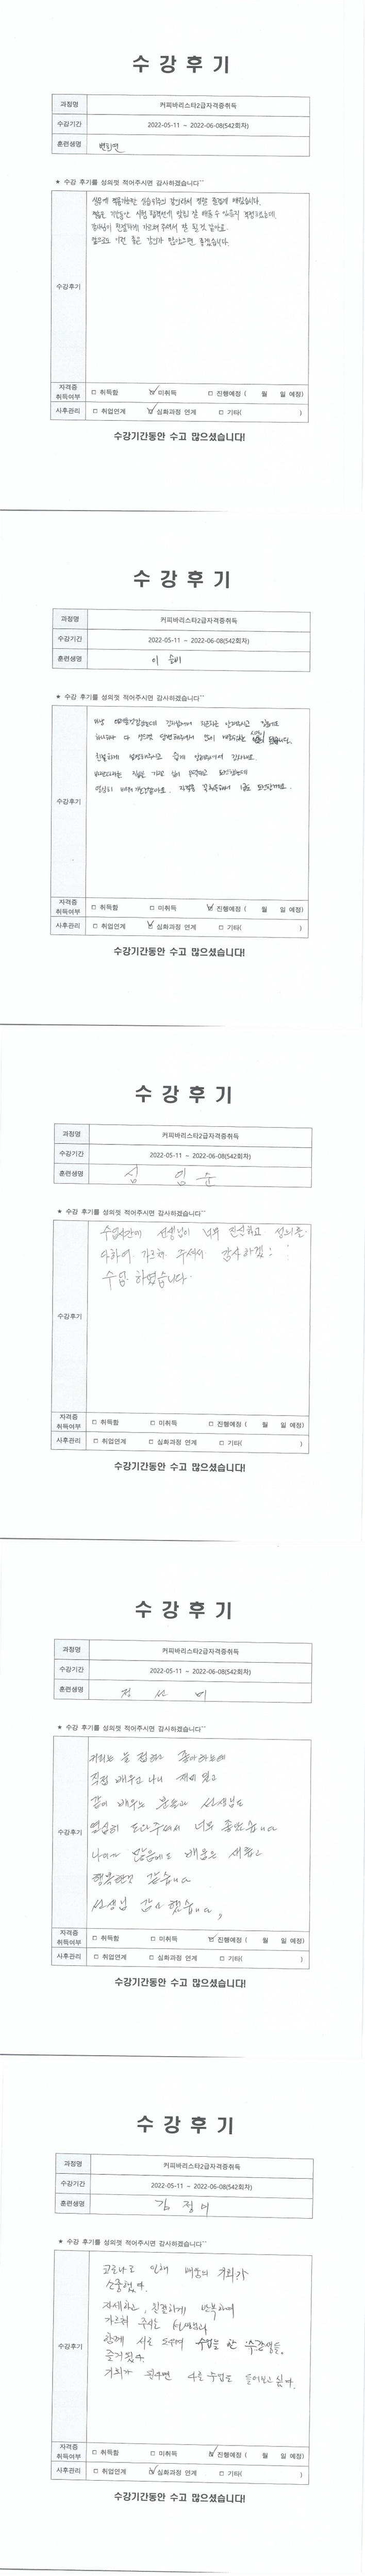 수 강 후 기
과정명 커피바리스타2급자격증취득
수강기간 2022-05-11 ~ 2022-06-08(542회차)
훈련생명
★ 수강 후기를 성의껏 적어주시면 감사하겠습니다^^
수강후기
실무에 적용가능한 실습위주의 강의라서 정말 즐겁게 배웠습니다.
짧은 기간동안 시험 합격선에 맞춰 잘 배울 수 있을지 걱정했는데,
강사님이 친절하게 가르쳐 주셔서 잘 된 것 같아요.
앞으로도 이런 좋은 강의가 많았으면 좋겠습니다.
자격증 취득여부 □ 취득함 ☑ 미취득 □ 진행예정 ( 월 일 예정)
사후관리 □ 취업연계 ☑ 심화과정 연계 □ 기타( )
수강기간동안 수고 많으셨습니다!
수 강 후 기
과정명 커피바리스타2급자격증취득
수강기간 2022-05-11 ~ 2022-06-08(542회차)
훈련생명 이 슬비
★ 수강 후기를 성의껏 적어주시면 감사하겠습니다^^
수강후기
친절하게 설명해주시고 쉽게 알려주셔서 감사해요.
자격증 취득여부 □ 취득함 □ 미취득 ☑ 진행예정 ( 월 일 예정)
사후관리 □ 취업연계 ☑ 심화과정 연계 □ 기타( )
수강기간동안 수고 많으셨습니다!
수 강 후 기
과정명 커피바리스타2급자격증취득
수강기간 2022-05-11 ~ 2022-06-08(542회차)
훈련생명 심 임 순
★ 수강 후기를 성의껏 적어주시면 감사하겠습니다^^
수강후기
수업시간에 선생님이 너무 친절하고 성의를
다하여 가르쳐 주셔서 감사하겜
수업 하였습니다.
자격증 취득여부 □ 취득함 □ 미취득 □ 진행예정 ( 월 일 예정)
사후관리 □ 취업연계 □ 심화과정 연계 □ 기타( )
수강기간동안 수고 많으셨습니다!
수 강 후 기
과정명 커피바리스타2급자격증취득
수강기간 2022-05-11 ~ 2022-06-08(542회차)
훈련생명 정 선 미
★ 수강 후기를 성의껏 적어주시면 감사하겠습니다^^
수강후기
커피는 늘 접하고 좋아하는데
직접 배우고 나니 재미 있고
같이 배우는 분들과 선생님도
열심히 도와주셔서 너무 좋았습니다
나이가 많음에도 배움은 새롭고
행복한것 같습니다
선생님 감사했습니다,
자격증 취득여부 □ 취득함 □ 미취득 ☑ 진행예정 ( 월 일 예정)
사후관리 □ 취업연계 □ 심화과정 연계 □ 기타( )
수강기간동안 수고 많으셨습니다!
수 강 후 기
과정명 커피바리스타2급자격증취득
수강기간 2022-05-11 ~ 2022-06-08(542회차)
훈련생명 김 정 미
★ 수강 후기를 성의껏 적어주시면 감사하겠습니다^^
수강후기
코로나로 인해 배움의 기회가
소중했다.
자세하고, 친절하게 반복하여
가르쳐 주시는 선생님과
함께 서로 도우며 수업을 한 수강생들.
즐거웠다.
기회가 된다면 다른 수업도 들어보고 싶다.
자격증 취득여부 □ 취득함 □ 미취득 ☑ 진행예정 ( 월 일 예정)
사후관리 □ 취업연계 ☑ 심화과정 연계 □ 기타( )
수강기간동안 수고 많으셨습니다!